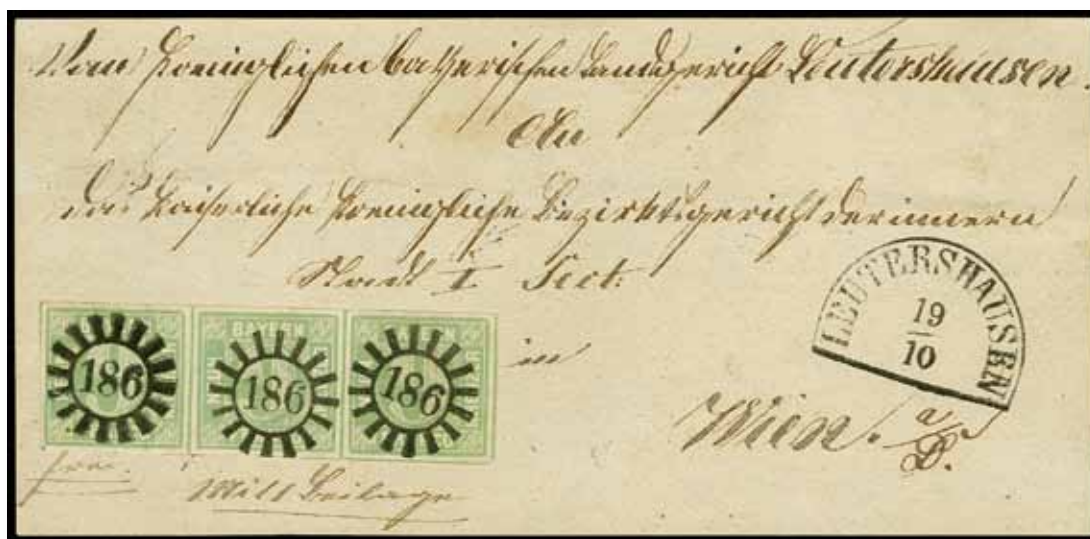 Vom Koeniglichen bayerischen Landgericht Leutershausen.
An
das Kaiserliche Koenigliche Bezirksgericht der innern
Stadt I Sect:
in
Wien. a/D.
LEUTERSHAUSEN
19/10
BAYERN
186
186
186
frco.
Mitt Beilage